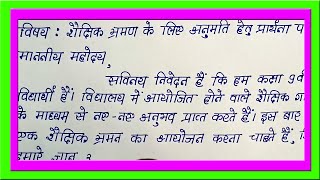 विषय : शैक्षिक भ्रमण के लिए अनुमति हेतु प्रार्थना प
माननीय महोदय,
सविनय निवेदन है कि हम कक्षा 9वीं
विद्यार्थी हैं। विद्यालय में आयोजित होने वाले शैक्षिक
के माध्यम से नए-नए अनुभव प्राप्त करते हैं। इस बार
एक शैक्षिक भ्रमन का आयोजन करना चाहते हैं,
हमारे ज्ञान